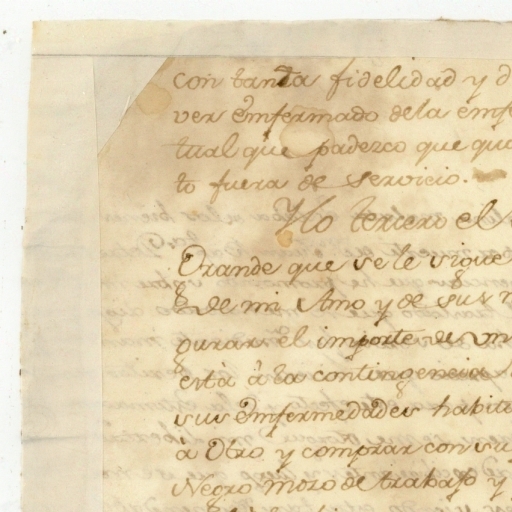 con tanta fidelidad y d
ver emfermado dela emfe
tual que padezco que qu
to fuera de servicio.
Y lo tercero el
Grande que se le sigue
de mi Amo y de sus
gurar el importe de un
està à la contingencia
sus emfermedades habitu
à Otro y comprar con su
Negro mozo de trabajo y